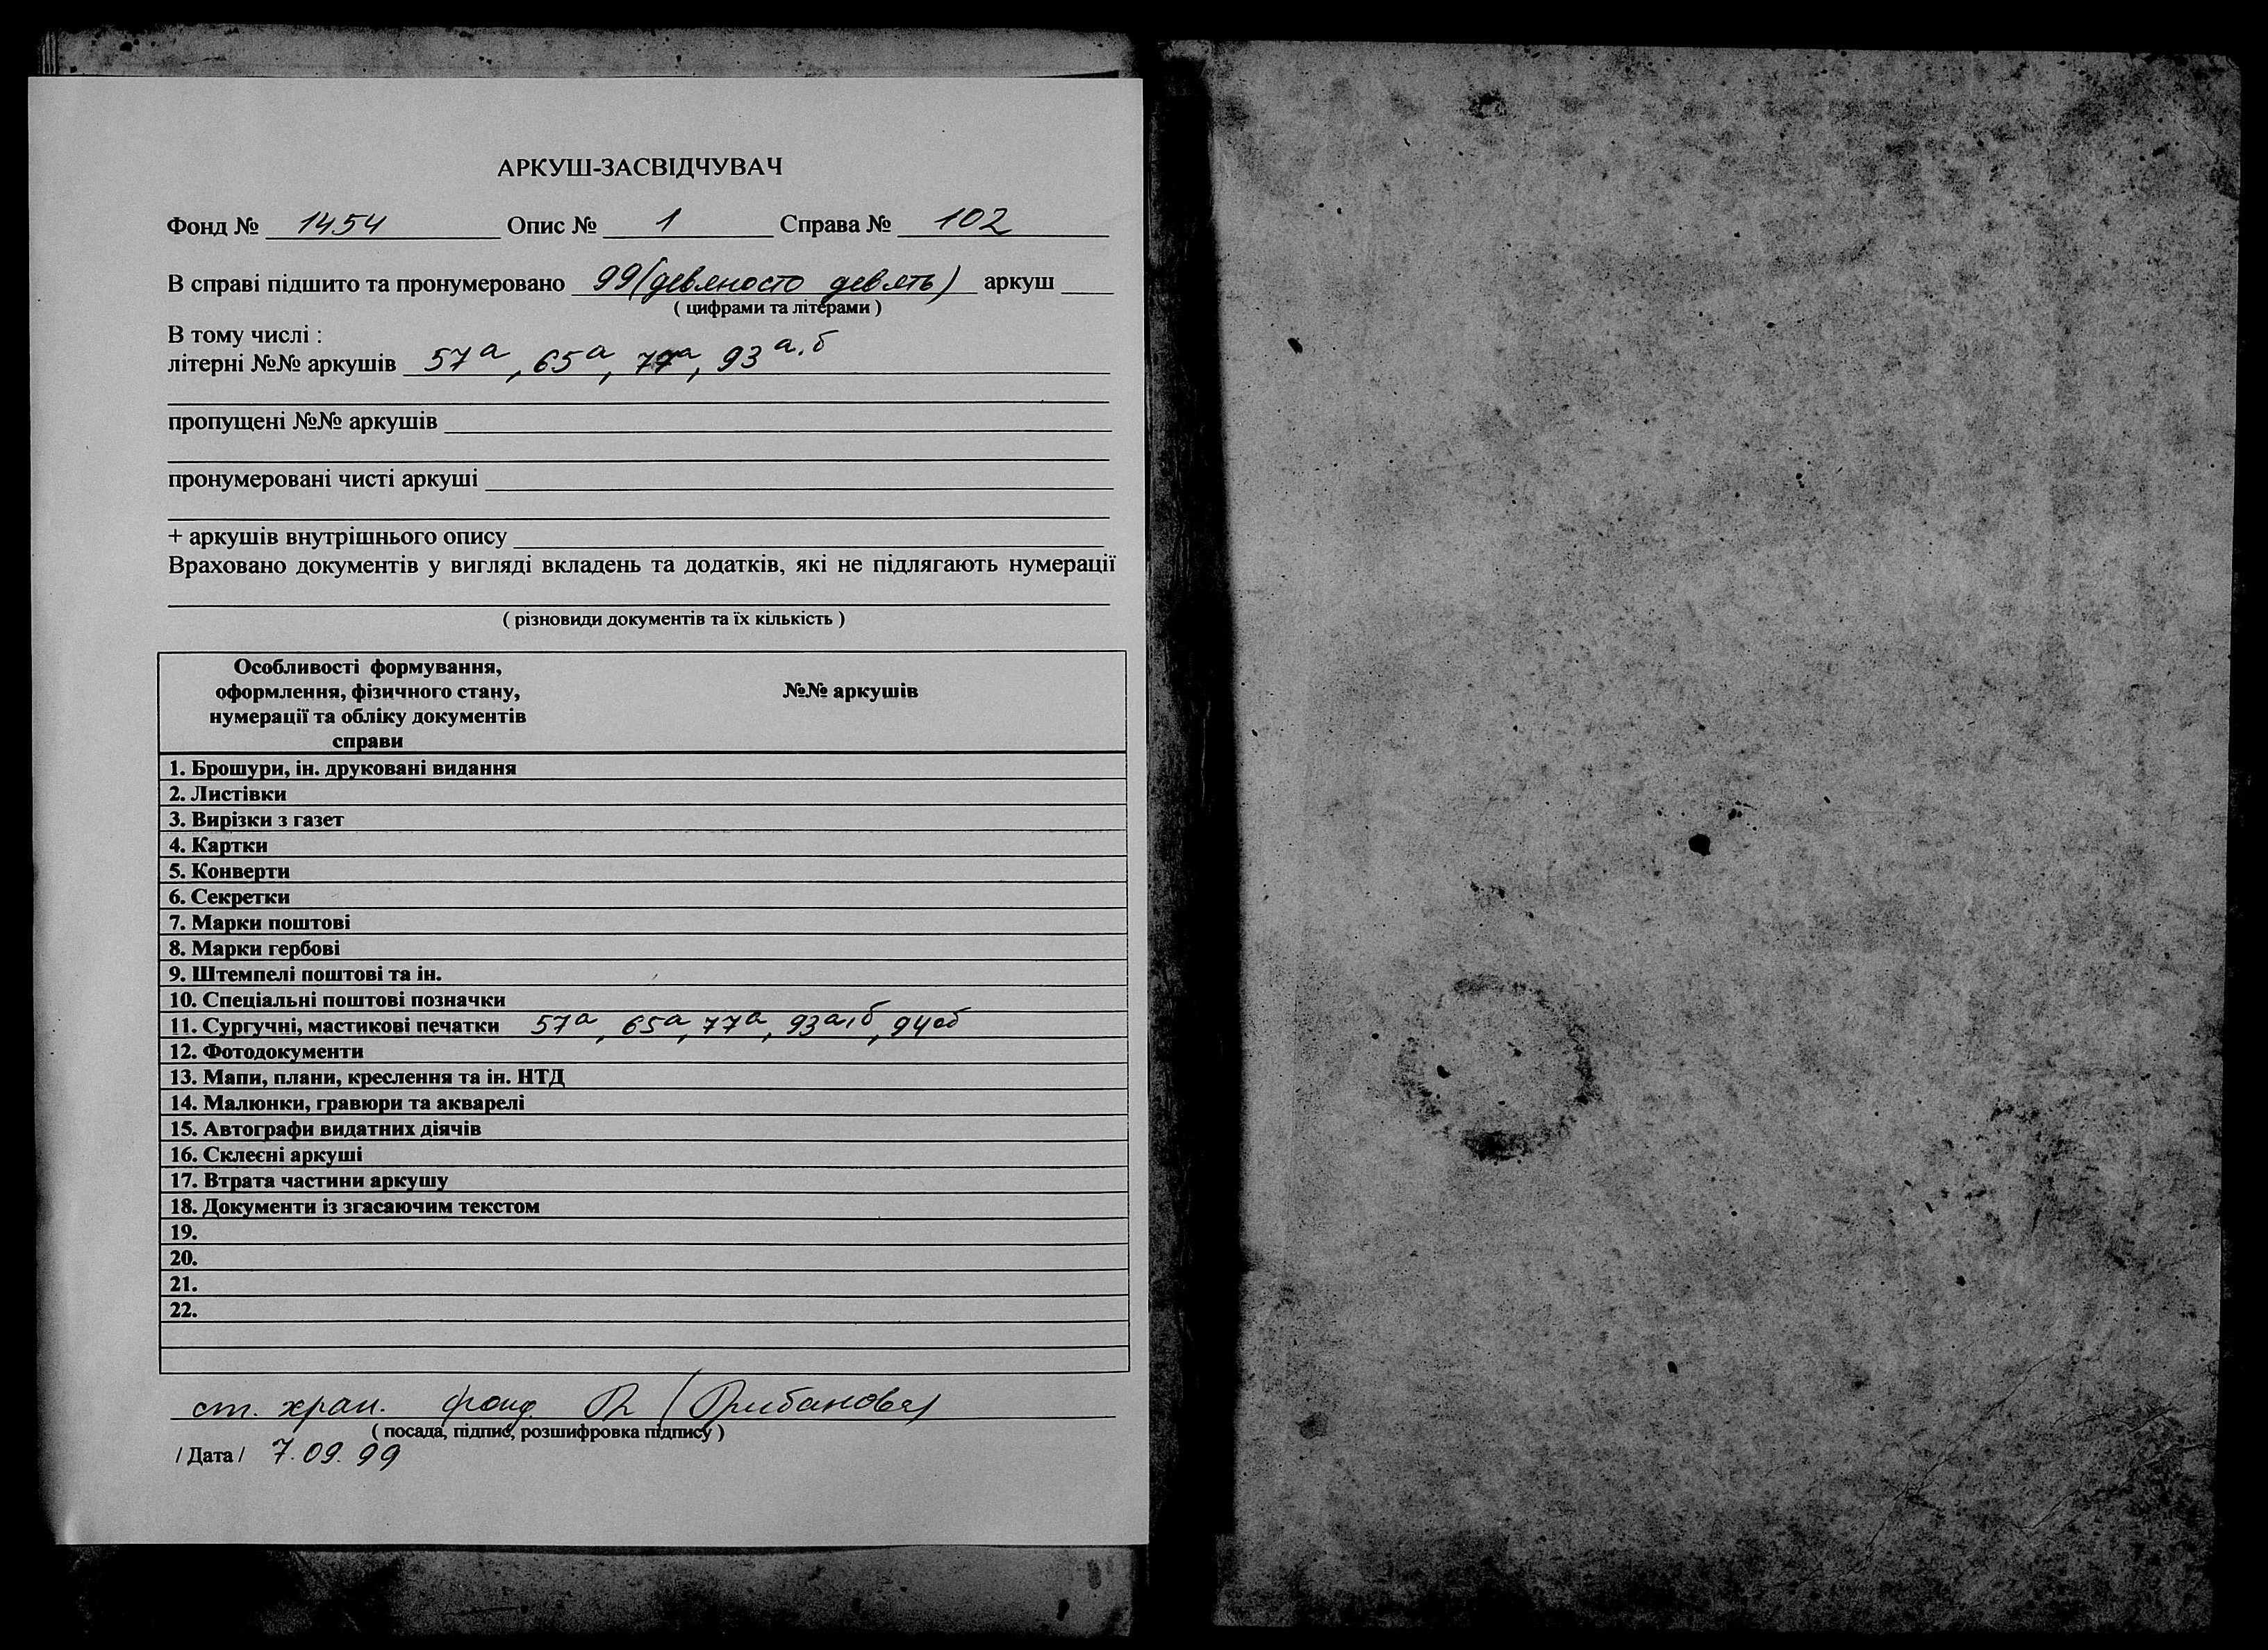 АРКУШ-ЗАСВІДЧУВАЧ
Фонд № 1454 Опис № 1 Справа № 102
В справі підшито та пронумеровано 99 (девяносто девять) аркуш
( цифрами та літерами )
В тому числі :
літерні №№ аркушів 57а, 65а, 77а, 93а,б
пропущені №№ аркушів
пронумеровані чисті аркуші
+ аркушів внутрішнього опису
Враховано документів у вигляді вкладень та додатків, які не підлягають нумерації
( різновиди документів та їх кількість )
Особливості формування,
оформлення, фізичного стану, №№ аркушів
нумерації та обліку документів
справи
1. Брошури, ін. друковані видання
2. Листівки
3. Вирізки з газет
4. Картки
5. Конверти
6. Секретки
7. Марки поштові
8. Марки гербові
9. Штемпелі поштові та ін.
10. Спеціальні поштові позначки
11. Сургучні, мастикові печатки 57а, 65а, 77а, 93а,б, 94об
12. Фотодокументи
13. Мапи, плани, креслення та ін. НТД
14. Малюнки, гравюри та акварелі
15. Автографи видатних діячів
16. Склеєні аркуші
17. Втрата частини аркушу
18. Документи із згасаючим текстом
19.
20.
21.
22.
ст. хран. фонд.
( посада, підпис, розшифровка підпису )
/ Дата / 7.09.99